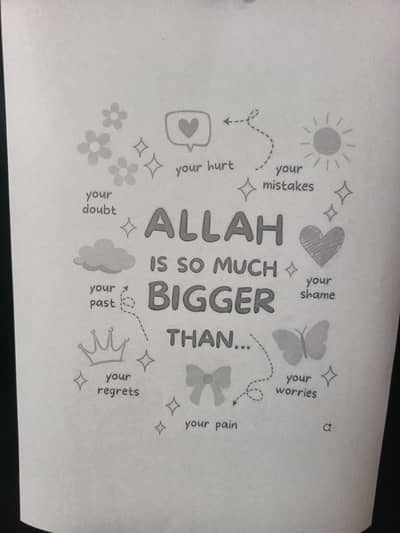 your hurt
your
mistakes
your
doubt
ALLAH
IS SO MUCH
BIGGER
THAN...
your
shame
your
past
your
regrets
your
worries
your pain